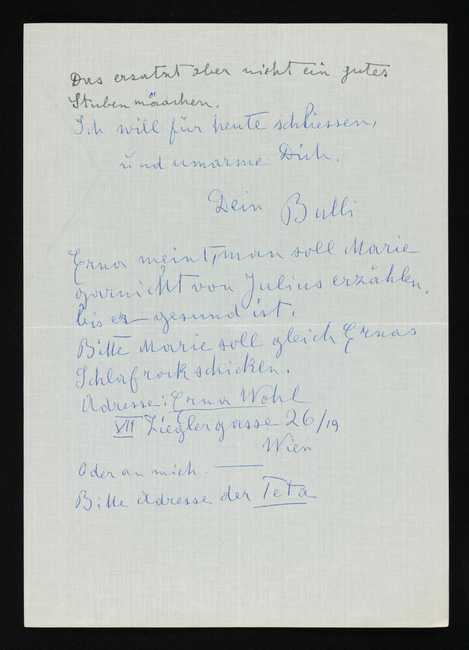 Das ersatzt aber nicht ein gutes
Stubenmäachen.
Ich will für heute schliessen,
und umarme Dich.
Dein Bulli
Erna meint, man soll Marie
garnicht von Julius erzählen,
bis er gesund ist.
Bitte Marie soll gleich Ernas
Schlafrock schicken.
Adresse: Erna Wohl
VII Zieglergasse 26/19
Wien
Oder an mich.
Bitte Adresse der Teta